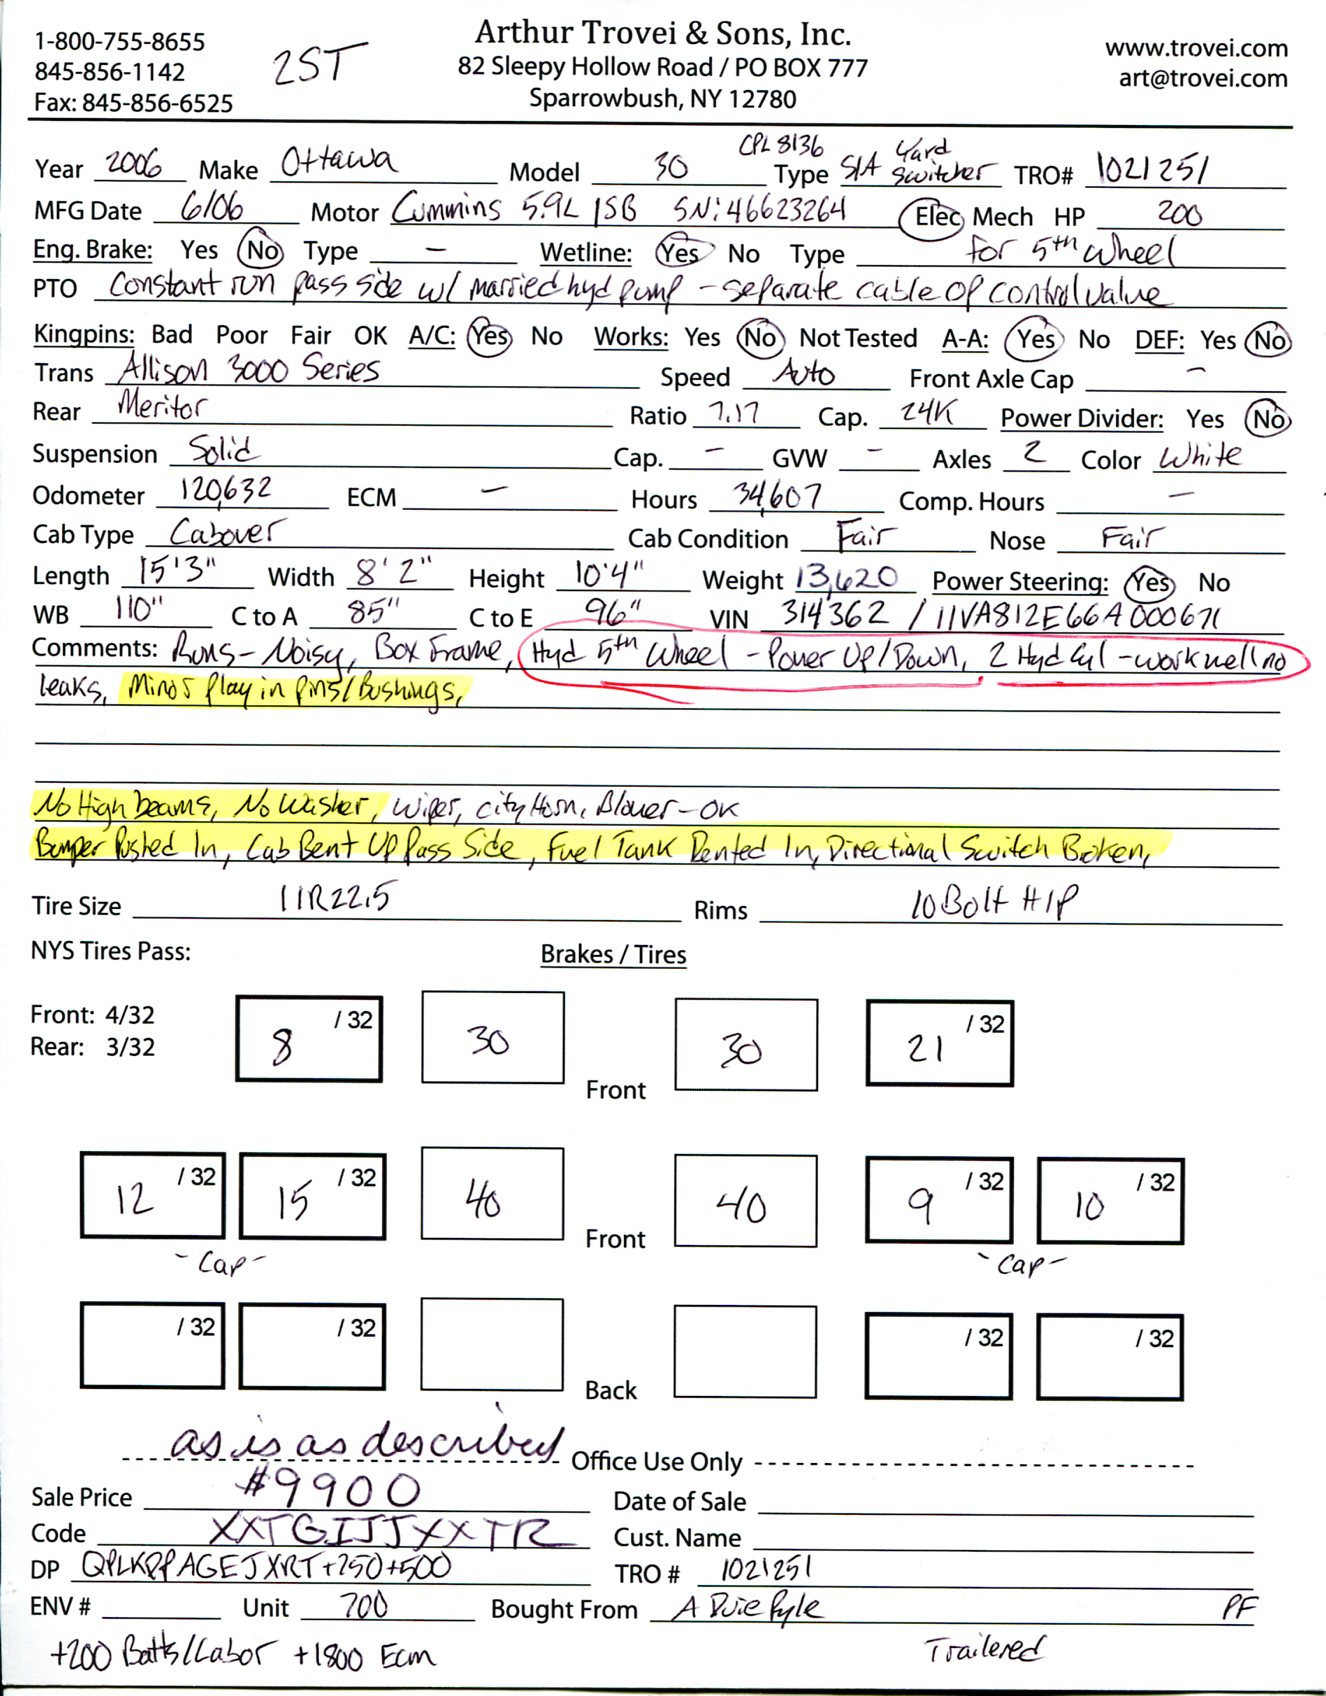 1-800-755-8655
845-856-1142
Fax: 845-856-6525
2ST
Arthur Trovei & Sons, Inc.
82 Sleepy Hollow Road / PO BOX 777
Sparrowbush, NY 12780
www.trovei.com
art@trovei.com
CPL 8136
Year 2006 Make Ottawa Model 30 Type S/A Yard Switcher TRO# 1021251
MFG Date 6/06 Motor Cummins 5.9L ISB SN: 46623264 Elec Mech HP 200
Eng. Brake: Yes No Type - Wetline: Yes No Type for 5th wheel
PTO Constant run pass side w/ married hyd pump - separate cable op control valve
Kingpins: Bad Poor Fair OK A/C: Yes No Works: Yes No Not Tested A-A: Yes No DEF: Yes No
Trans Allison 3000 Series Speed Auto Front Axle Cap -
Rear Meritor Ratio 7.17 Cap. 24K Power Divider: Yes No
Suspension Solid Cap. - GVW - Axles 2 Color White
Odometer 120,632 ECM - Hours 34,607 Comp. Hours -
Cab Type Cabover Cab Condition Fair Nose Fair
Length 15'3" Width 8'2" Height 10'4" Weight 13,620 Power Steering: Yes No
WB 110" C to A 85" C to E 96" VIN 314362 / 11VA812E66A000671
Comments: Runs - Noisy, Box Frame, Hyd 5th Wheel - Power Up/Down, 2 Hyd Cyl - work well no
leaks, Minor play in pins/Bushings,
No High beams, No Washer, Wiper, City Horn, Blower - OK
Bumper Pushed In, Cab Bent Up Pass Side, Fuel Tank Dented In, Directional Switch Broken,
Tire Size 11R22.5 Rims 10 Bolt H/P
NYS Tires Pass: Brakes / Tires
Front: 4/32
Rear: 3/32
8 /32 30 Front 30 21 /32
12 /32 15 /32 40 Front 40 9 /32 10 /32
- Cap - - Cap -
/32 /32 Back /32 /32
as is as described Office Use Only
Sale Price #9900 Date of Sale
Code XXTGIJJXXTR Cust. Name
DP QPLKPPAGEJXRT+250+500 TRO # 1021251
ENV # Unit 700 Bought From A Duie Pyle PF
+200 Batts/Labor +1800 Ecm Trailered